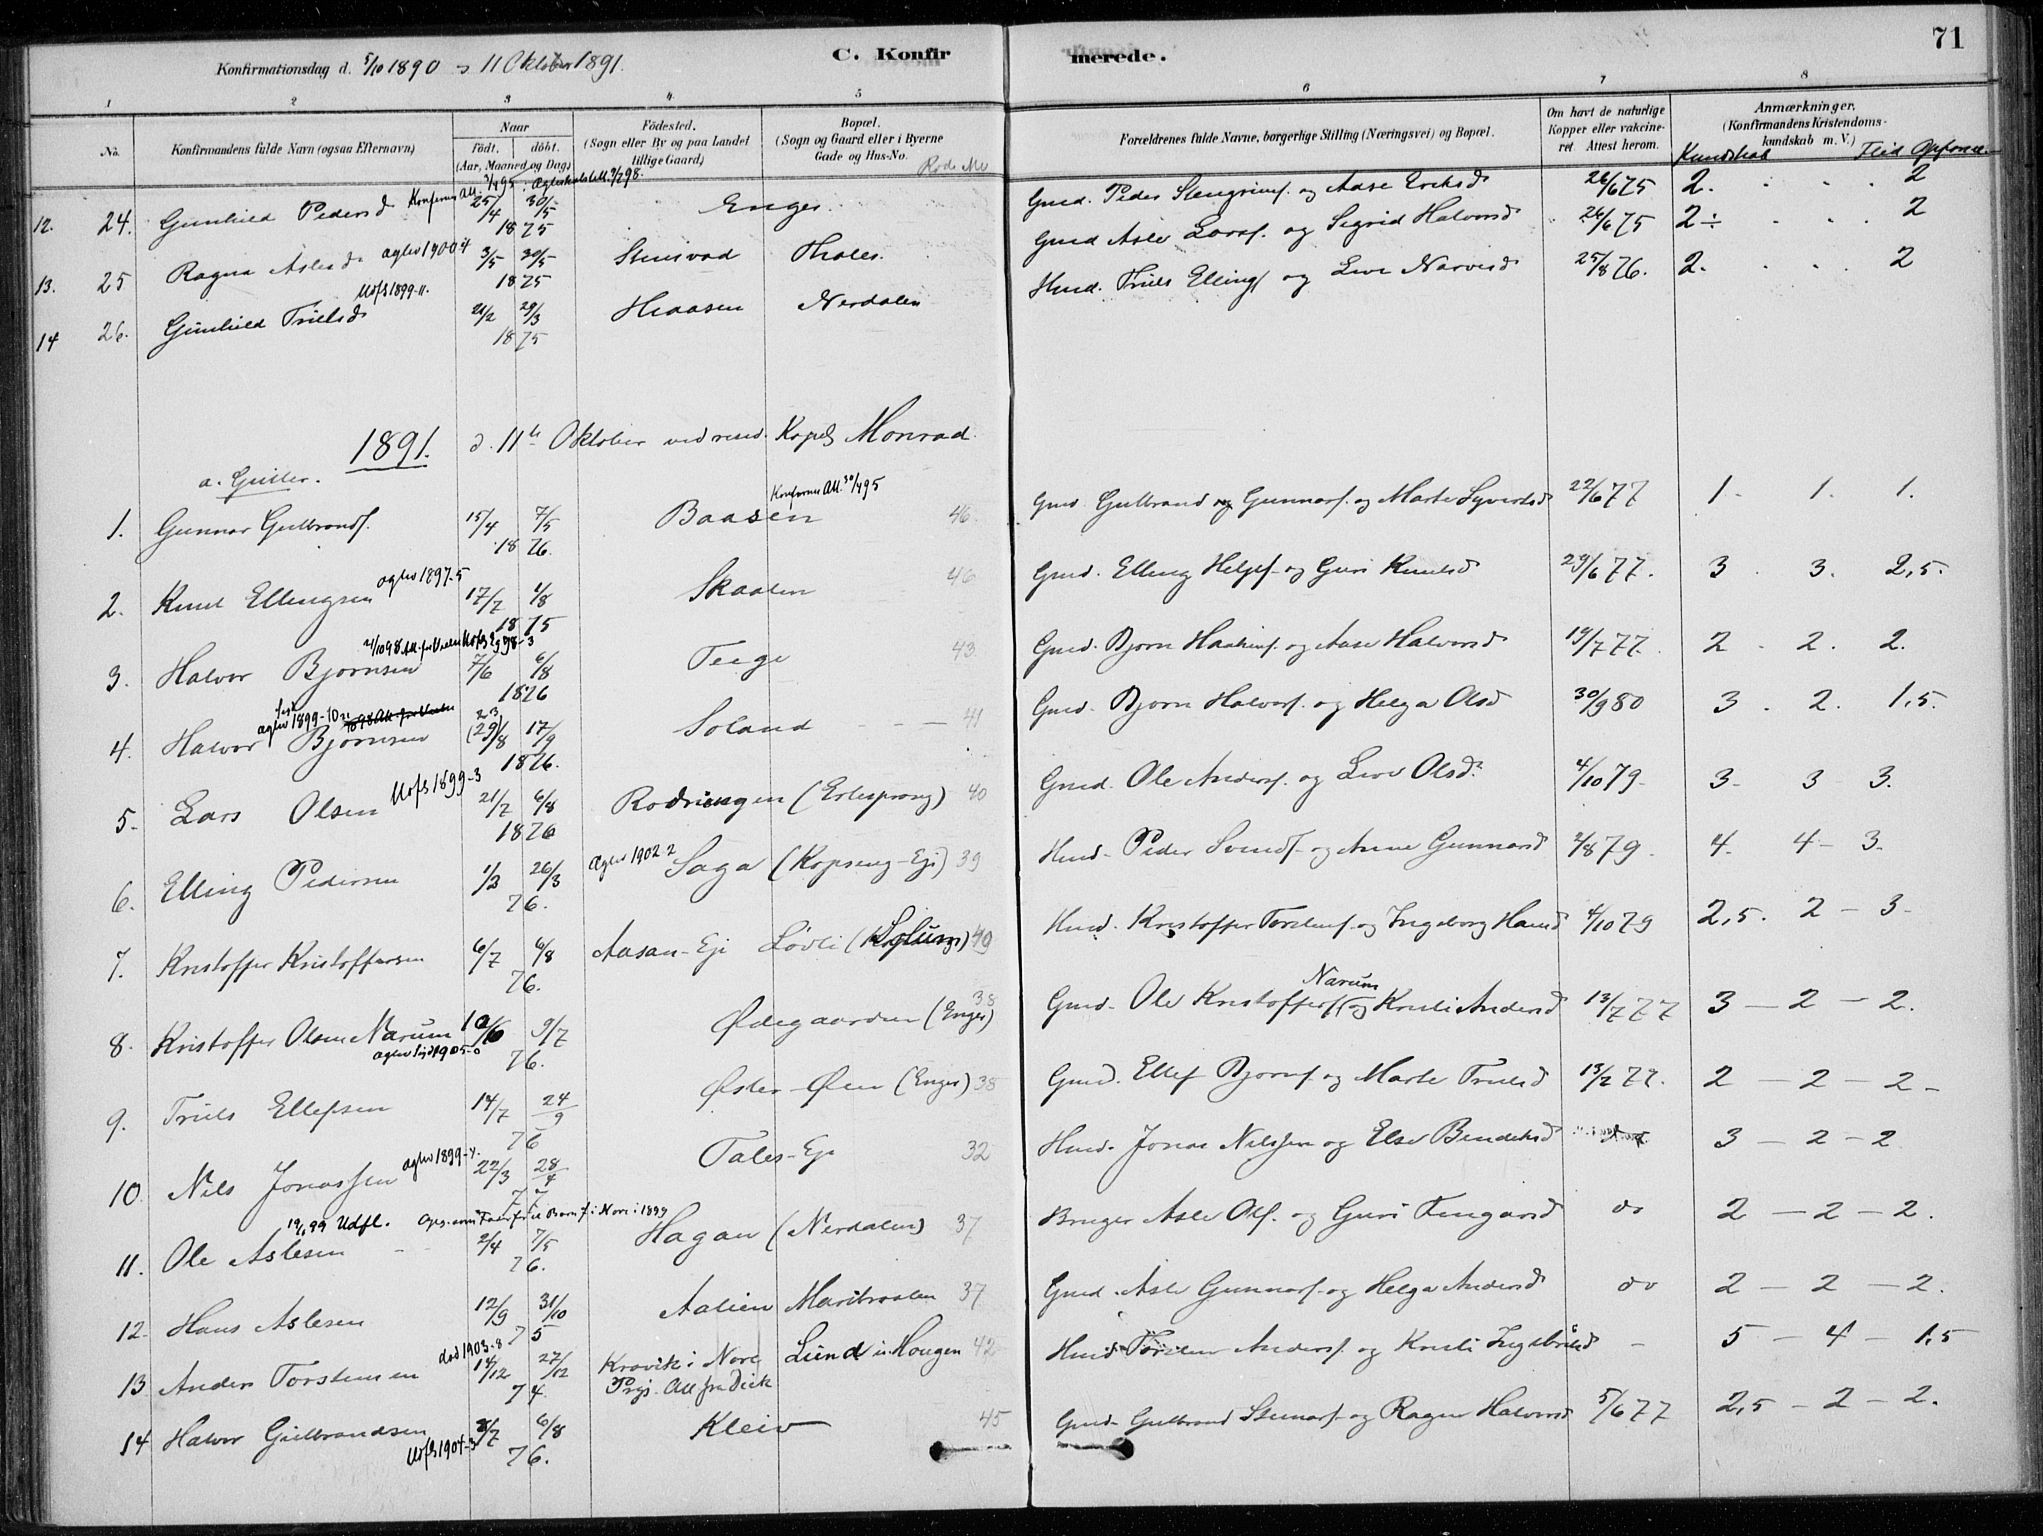 71
Konfirmationsdag d. 5/10 1890 - 11 Oktober 1891.
C. Konfirmerede.
1 2 3 4 5 6 7 8
No. Konfirmandens fulde Navn (ogsaa Efternavn) Naar født. døbt. (Aar, Maaned og Dag) Fødested. (Sogn eller By og paa Landet tillige Gaard) Bopæl. (Sogn og Gaard eller i Byerne Gade og Hus-No. Forældrenes fulde Navne, borgerlige Stilling (Næringsvei) og Bopæl. Om havt de naturlige Kopper eller vakcineret. Attest herom. Anmærkninger. (Konfirmandens Kristendomskundskab m. V.)
Rode Kundskab Flid Opførsel
12. 24. Gunhild Pedersd 25/4 30/5 1875 Enger Gmd. Peder Stengrimss. og Aase Eriksd 26/6 75 2. 2
13. 25 Ragna Aslesd aglev 1900-4 3/5 30/5 1875 Steisvad Tholes Gmd Asle Larss. og Sigrid Halvorsd 26/6 75 2÷ 2
14 26. Gunhild Truelsd Udfl 1899-11. 21/2 29/3 1875 Haasen Nerdalen Hmd. Truls Ellings og Live Narvesd 25/8 76. 2. 2
1891. d. 11te Oktober ved resid. Kapel Monrad
a. Gutter.
1. Gunnar Gulbrands. 15/4 7/5 1876. Baasen 46. Gmd. Gulbrand Gunnars. og Marte Syvertsd 22/6 77 1 - 1. 1.
Konfirmer Att. 30/4 95
2. Knut Ellingsen aglev 1897-5 17/7 1/8 1875 Skaalen 46 Gmd. Elling Helges. og Guri Knutsd 29/6 77. 3 . 3. 2,5.
3. Halvor Bjørnsen 7/6 6/8 1876 Teige 43 Gmd. Bjørn Haakens. og Aase Halvorsd 19/7 77. 2 . 2. 2.
4. Halvor Bjørnsen aglev 1899-10 (29)/8 17/9 1876. Soland 41 Gmd. Bjørn Halvors. og Helga Olsd 30/9 80 3 . 2. 1,5.
5. Lars Olsen Udfl 1899-3 21/7 6/8 1876 Rodningen (Erlesprang) 40 Gmd. Ole Anders. og Live Olsd. 4/10 79. 3- 3 3.
6. Elling Pedersen 1/2 26/3 76. Aglev 1902-2 Saga (Kopseng-Eje) 39 Hmd. Peder Svends. og Anne Gunnarsd 2/8 79. 4. 4- 3.
7. Kristoffer Kristoffersen 6/7 6/8 76. Aasan-Eje Løvli 49 Hmd. Kristoffer Torstens. og Ingeborg Hansd 4/10 79 2,5. 2 - 3-
8. Kristoffer Olsen Narum 10/6 9/7 76. Ødegaarden (Enger) 38 Gmd. Ole Kristoffers. Narum og Kristi Andersd 13/7 77 3 - 2 - 2.
9. Truls Ellefsen 14/7 24/9 76 Øster-Øen (Enger) 38 Gmd. Ellef Bjørns. og Marte Trulsd 13/2 77. 2 - 2 - 2-
10. Nils Jonassen aglev 1899-4. 22/3 28/4 77. Tales-Eje 32 Hmd. Jonas Nilssen og Else Bendeksd 3 - 2 - 2
11. Ole Aslesen 19/6 99 Udfl. 2/4 7/5 76. Hagan (Nerdalen) 37 Bruger Asle Ols. og Guri Tengarsd do 2 - 2 - 2.
12. Hans Aslesen 12/9 31/10 75 Aalien Maribraaten 37 Gmd. Asle Gunnars. og Helga Andersd do 2 - 2 - 2.
13 Anders Torstensen død 1903-8 14/12 27/12 74. Kravik i Nore Prgj. Att fra Dick Lund u. Haugen 42 Hmd. Torsten Anders. og Kristi Ingebritsd - 5 - 4 - 1,5
14 Halvor Gulbrandsen Udfl 1904-3 3/7 6/8 76. Kleiv 45 Gmd. Gulbrand Steinars. og Ragne Halvorsd 5/6 77 2,5 - 2 - 2.